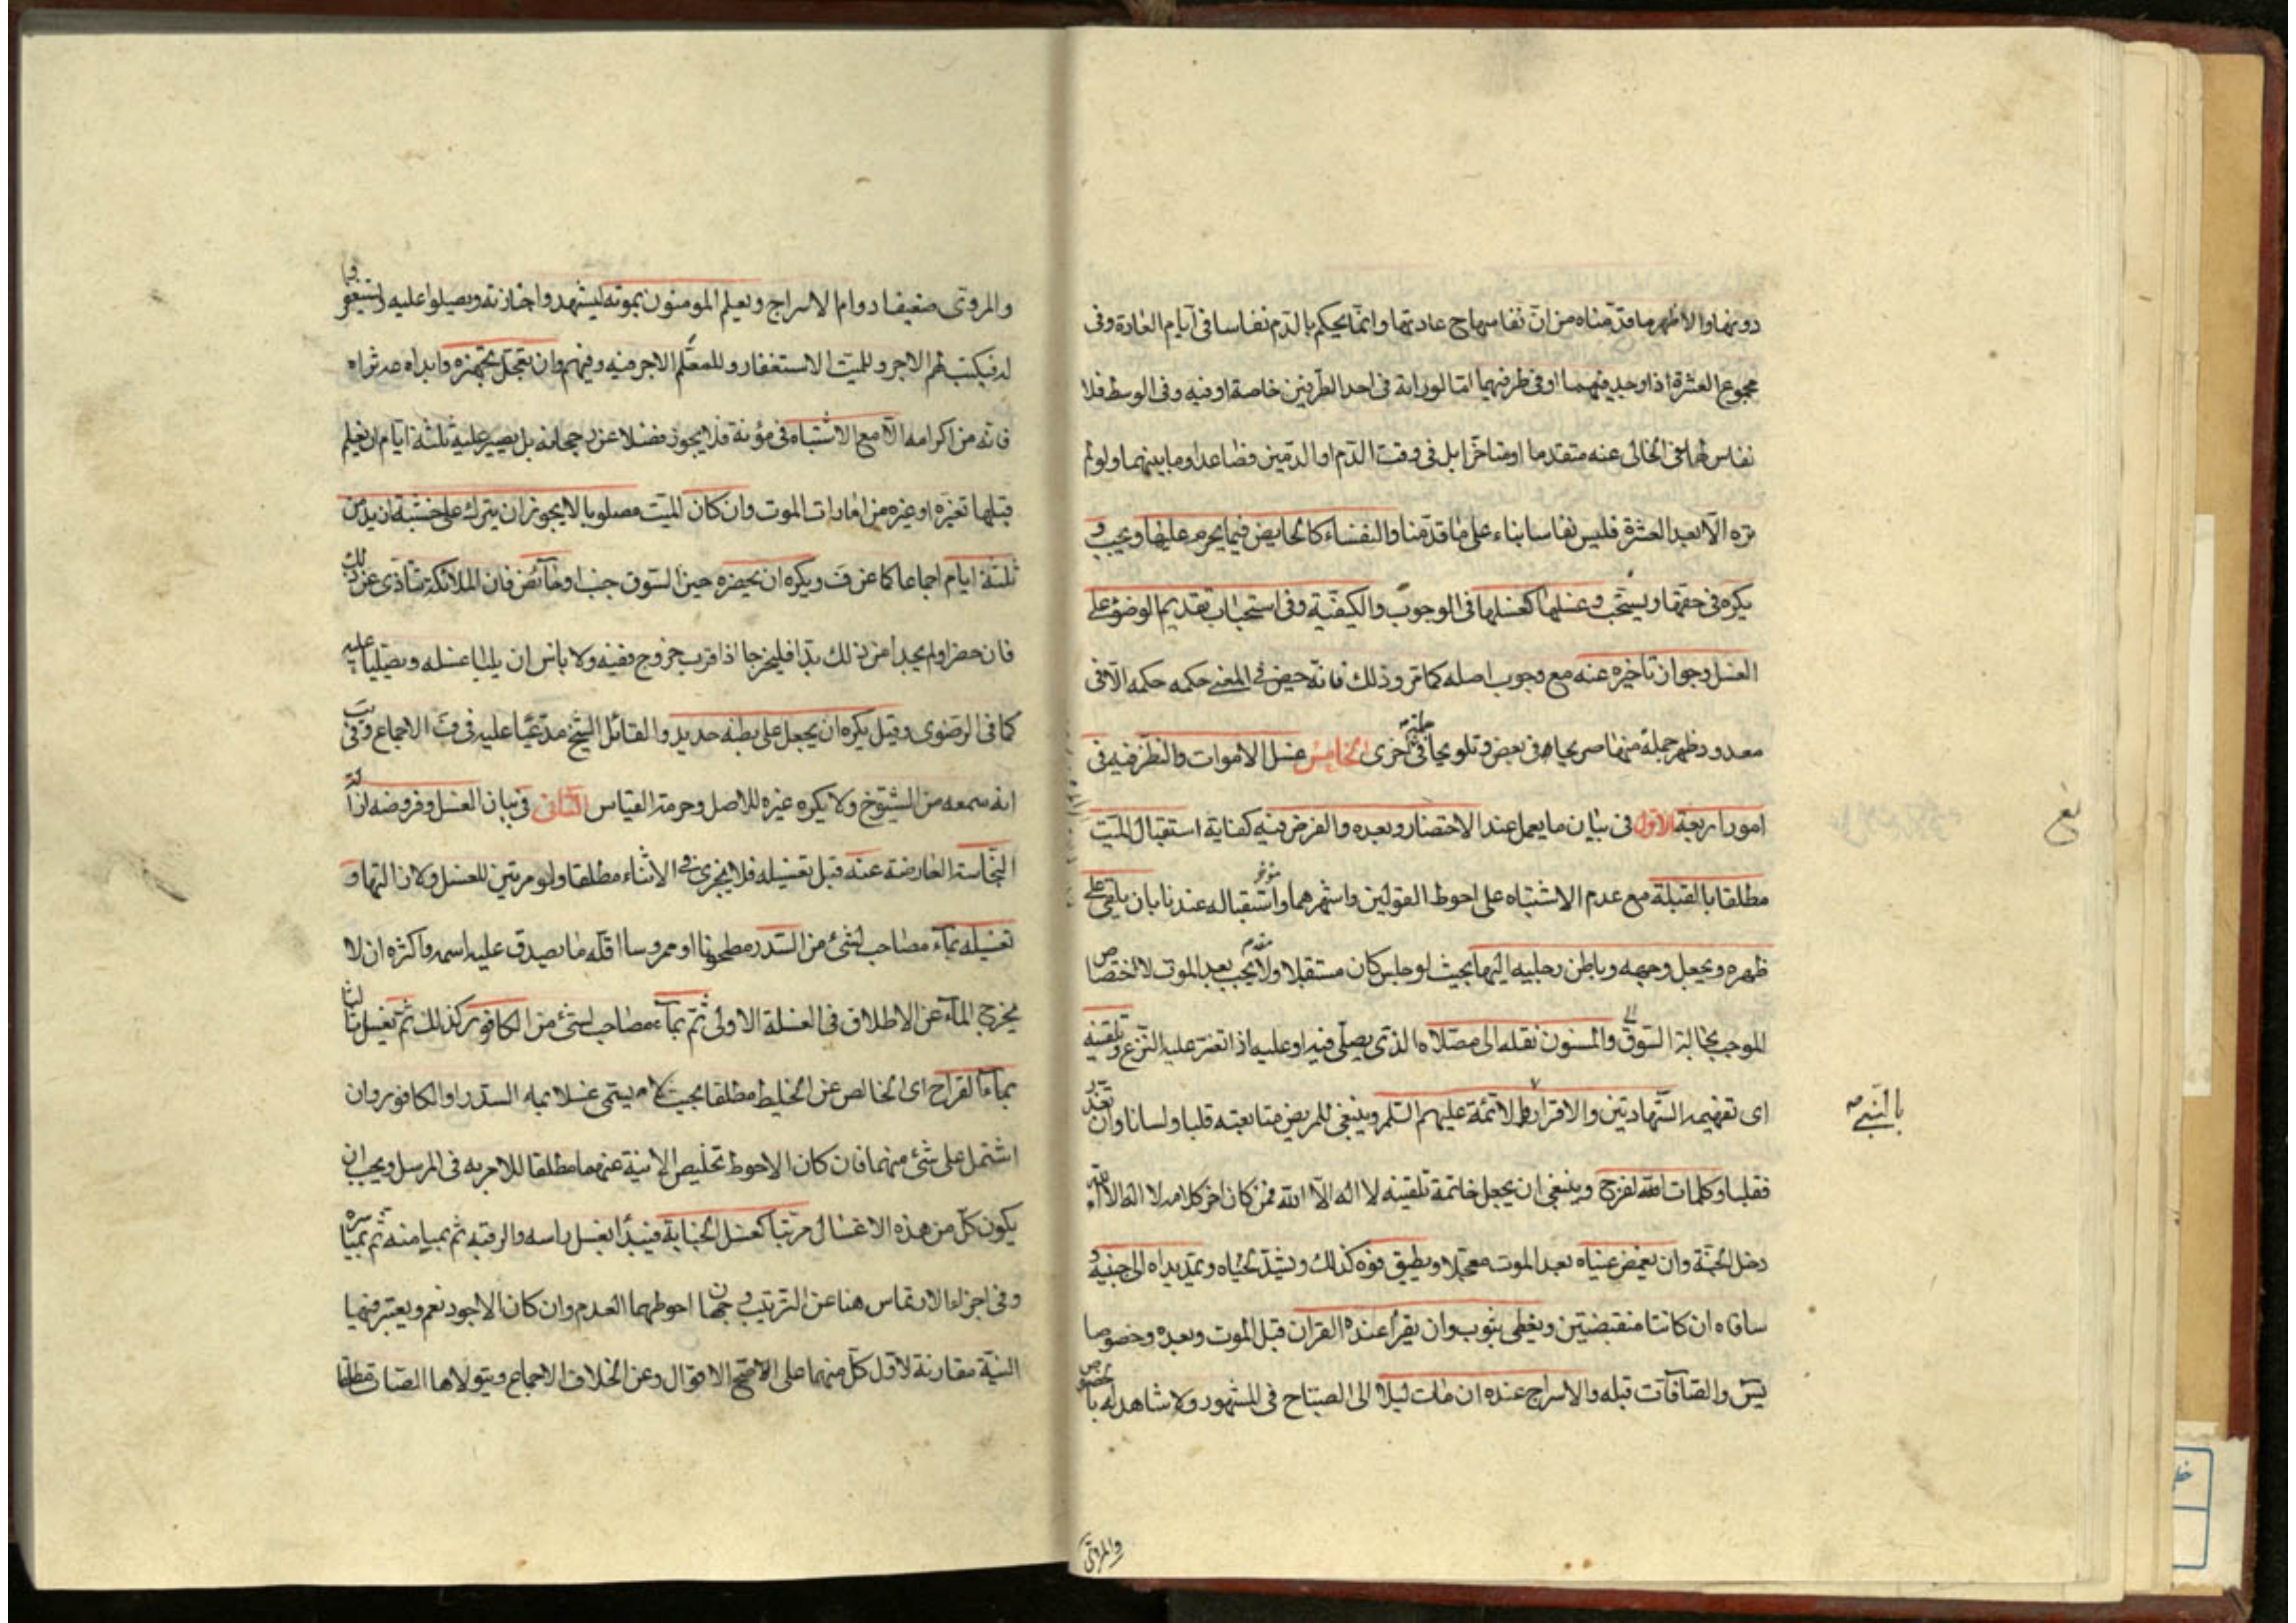 دونها والاظهر ما قدمناه من ان نفاسها ح عادتها وانما يحكم بالدم نفاسا في ايام العادة وفى
مجموع العشرة اذا وجد فيهما او فى طرفيهما امّا لو راته فى احد الطرفين خاصة او فيه وفى الوسط فلا
نفاس لها فى الخالى عنه متقدما او متاخرا بل فى وقت الدم او الدمين فصاعدا وما بينهما ولو لم
تره الا بعد العشرة فليس نفاسا بناء على ما قدمنا والنفساء كالحايض فيما يحرم عليها ويجب و
يكره فى حقها ويستحب وغسلها كغسلها فى الوجوب والكيفية وفى استحباب تقديم الوضوء على
الغسل وجواز تاخيره عنه مع وجوب اصله كما مر وذلك فانه حيض فى المعنى حكمه حكمه الا فى
معدود ظهر جملة منها صريحا فى بعض وتلويحا فى اخرى الخامس غسل الاموات والنظر فيه فى
امور اربعة الاول فى بيان ما يعمل عند الاحتضار وبعده والفرض فيه كفاية استقبال الميت
مطلقا بالقبلة مع عدم الاشتباه على احوط القولين واشهرهما واستقباله عندنا بان يلقى على
ظهره ويجعل وجهه وباطن رجليه اليها بحيث لو جلس كان مستقبلا ولا يجب بعد الموت لاختصاص
الموجب بحالة السوق والمسنون نقله الى مصلاه الذى يصلى فيه او عليه اذا تعسر عليه النزع وتلقينه
اى تفهيمه الشهادتين والاقرار بالائمة عليهم السلم وينبغى للمريض متابعته قلبا ولسانا وان تعذر
فقلبا وكلمات الفرج وينبغى ان يجعل خاتمة تلقينه لا اله الا الله فمن كان اخر كلامه لا اله الا الله
دخل الجنة وان يغمض عيناه بعد الموت معجلا ويطبق فوه كذلك ويشد لحياه وتمد يداه الى جنبيه و
ساقاه ان كانتا منقبضتين ويغطى بثوب وان يقرأ عنده القران قبل الموت وبعده وخصوصا
يس والصافات قبله والاسراج عنده ان مات ليلا الى الصباح فى المشهور ولا شاهد له بالخصوص
بالنبى ص
والمروى
والمروى ضعيفا دوام الاسراج ويعلم المومنون بموته ليشهدوا جنازته ويصلوا عليه ويستغفروا
له فيكتب لهم الاجر وللميت الاستغفار وللمعلم الاجر فيه وفيهم وان يعجل تجهيزه
فانه من اكرامه الا مع الاشتباه فى موته فلا يجوز فضلا عن رجحانه بل يصبر عليه ثلثة ايام ان يعلم
قبلها تغيره او غيره من امارات الموت وان كان الميت مصلوبا لا يجوز ان يترك على خشبة ازيد من
ثلثة ايام اجماعا كما عن ف ويكره ان يحضره حين السوق جنب او حائض فان الملائكة تتاذى عن ذلك
فان حضرا ولم يجدا من ذلك بدا فليخرجا اذا قرب خروج نفسه ولا باس ان يليا غسله ويصليا عليه
كما فى الرضوى وقيل يكره ان يجعل على بطنه حديد والقائل الشيخ مدعيا عليه فى ف الاجماع وفى يب
انه سمعه من الشيوخ ولا يكره غيره للاصل وحرمة القياس الثانى فى بيان الغسل وفروضه ازالة
النجاسة العارضة عنه قبل تغسيله فلا يجزى فى الاثناء مطلقا ولو مرتين للغسل ولازالتها و
تغسيله بماء مصاحب لشئ من السدر مطحونا او ممروسا اقله ما يصدق عليه اسمه واكثره ان لا
يخرج الماء عن الاطلاق فى الغسلة الاولى ثم بماء مصاحب لشئ من الكافور كذلك ثم تغسل ثالثا
بماء القراح اى الخالص عن الخليط مطلقا بحيث لا يسمى غسلا بماء السدر او الكافور وان
اشتمل على شئ منهما فان كان الاحوط تخليص الانية عنهما مطلقا للامر به فى المرسل ويجب ان
يكون كل من هذه الاغسال مرتبا كغسل الجنابة فيبدأ بغسل راسه والرقبة ثم بميامنه ثم بمياسره
وفى اجزاء الارتماس هنا عن الترتيب وجهان احوطهما العدم وان كان الاجود نعم ويعتبر فيها
النية مقارنة لاول كل منهما على الاصح الاقوال وعن الخلاف الاجماع ويتولاها الصاب مطلقا